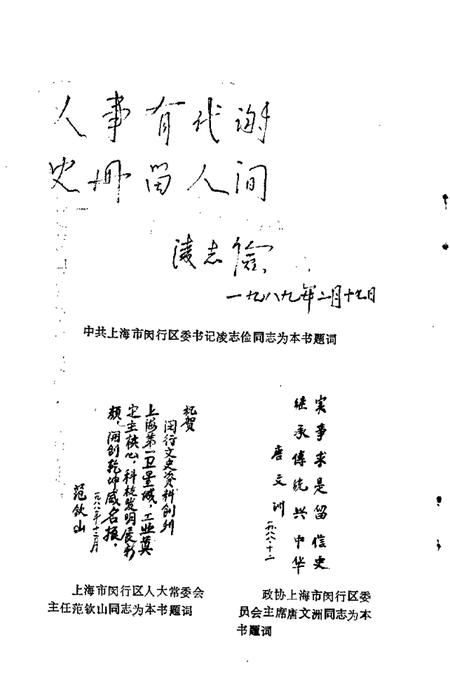 人事有代谢
史册留人间
凌志俭
一九八九年二月十九日
中共上海市闵行区委书记凌志俭同志为本书题词
祝贺
闵行文史资料创刊
上海第一卫星城，工业莫
定主核心，科技发明展新
颜，闹创乾坤威名振，
范钦山
一九八八年十二月
实事求是留信史
继承传统兴中华
唐文洲
一九八八·十二
上海市闵行区人大常委会
主任范钦山同志为本书题词
政协上海市闵行区委
员会主席唐文洲同志为本
书题词